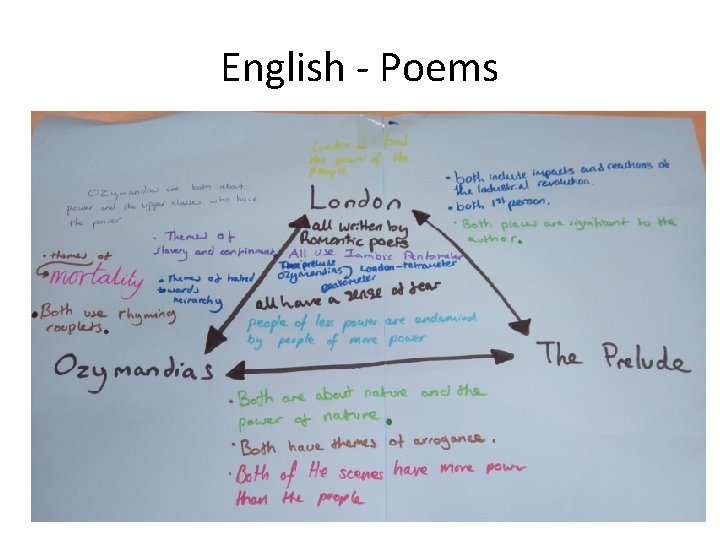 English - Poems
London is about
the power of the
people
London
Ozymandias are both about
power and the upper classes who have
the power
• Themes of
slavery and continment
• themes of
mortality
• Themes of hatred
towards
heirarchy
• Both use rhyming
couplets.
all written by
Romantic poets
All use Iambic Pentameter
The prelude
Ozymandias
pentameter
London - tetrameter
all have a sense of fear
people of less power are undemind
by people of more power
• both include impacts and reactions of
the Industrial revolution.
• both 1st person.
• Both places are significant to the
author.
Ozymandias
The Prelude
• Both are about nature and the
power of nature.
• Both have themes of arrogance.
• Both of the scenes have more power
than the people